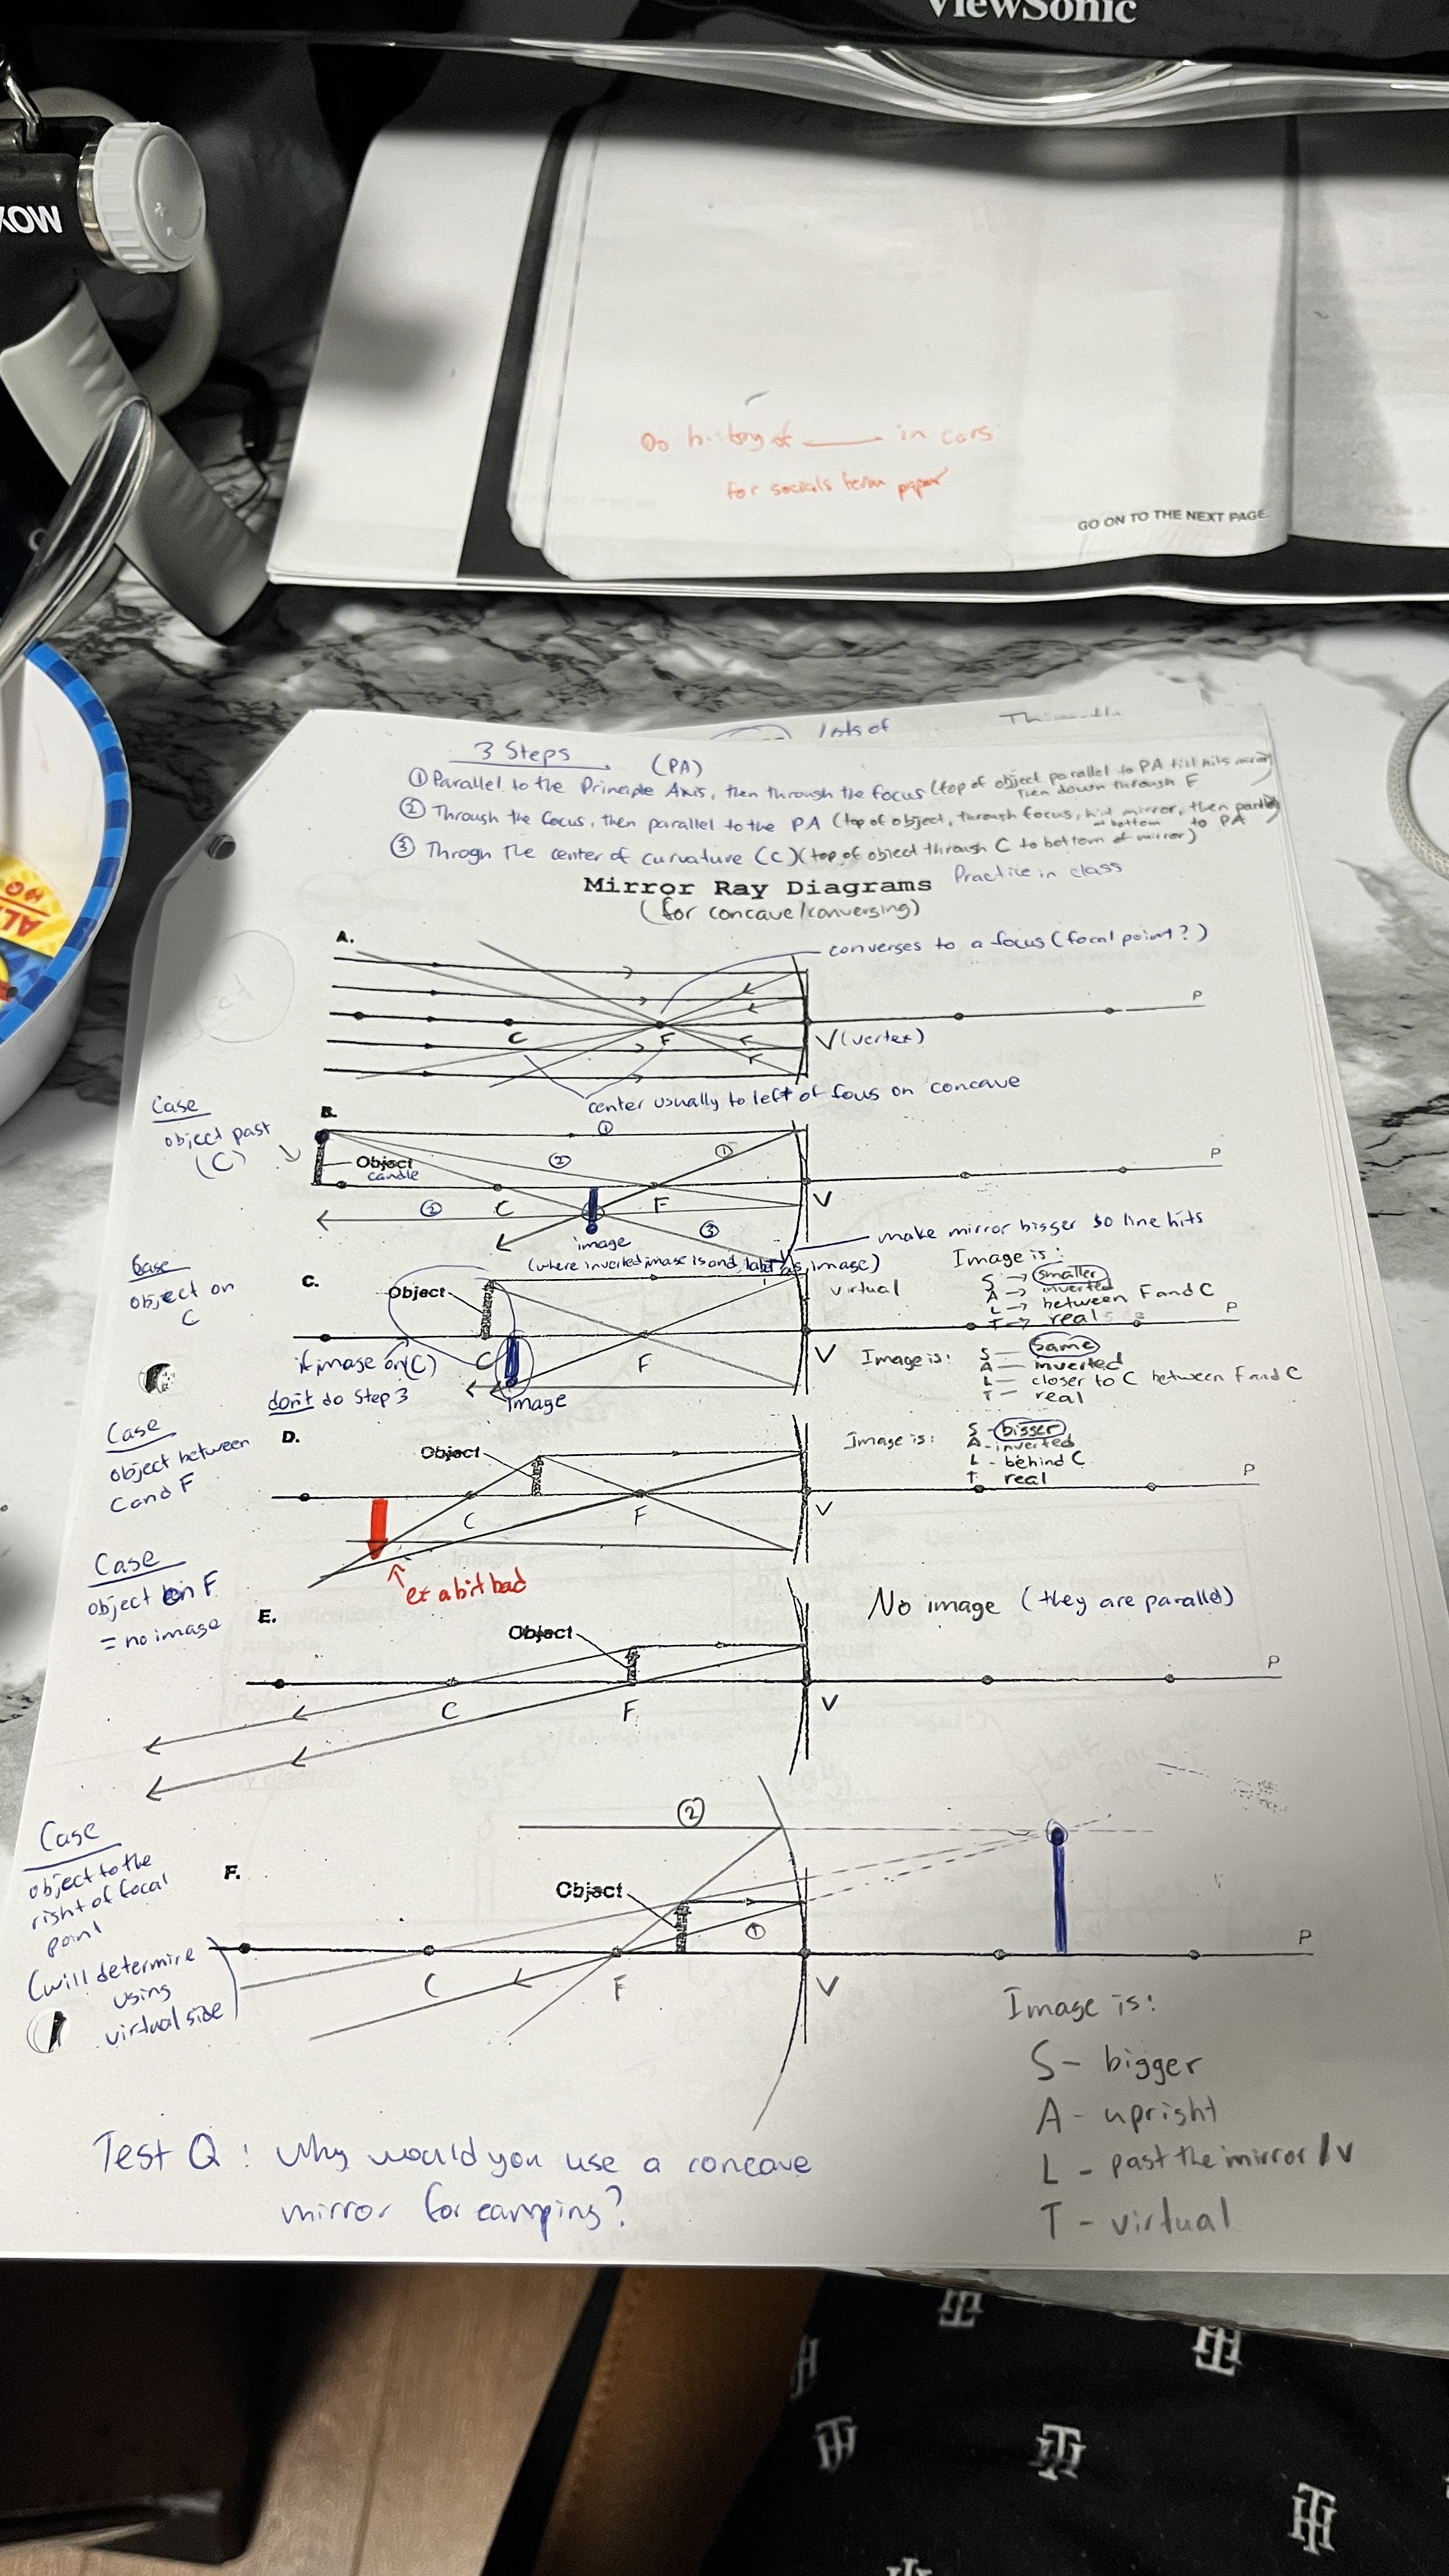 ViewSonic
Do history of ___ in cars
for socials term paper
GO ON TO THE NEXT PAGE
lots of
3 Steps
(PA)
① Parallel to the Principle Axis, then through the focus (top of object parallel to PA till hits mirror,
then down through F
② Through the focus, then parallel to the PA (top of object, through focus, hit mirror, then parallel
at bottom to PA
③ Throgh The center of curvature (C) (top of object through C to bottom of mirror)
Practice in class
Mirror Ray Diagrams
(for concave/converging)
A.
converges to a focus (focal point?)
P
C
F
V (vertex)
center usually to left of focus on concave
Case
object past
(C)
B.
①
①
②
Object
candle
P
②
C
F
V
③
image
(where inverted image is and label as image)
make mirror bigger so line hits
Case
object on
C
C.
Object
virtual
Image is:
S → smaller
A → inverted
L → between F and C
T → real
P
if image on (C)
don't do Step 3
C
F
V
image
Image is:
S - same
A - inverted
L - closer to C between F and C
T - real
Case
object between
C and F
D.
Object
Image is:
S - bigger
A - inverted
L - behind C
T real
P
C
F
V
ex a bit bad
Case
object on F
= no image
E.
Object
No image (they are parallel)
P
C
F
V
Case
object to the
right of focal
point
(will determine
using
virtual side
②
F.
Object
①
P
C
F
V
Image is:
S - bigger
A - upright
L - past the mirror / V
T - virtual
Test Q: Why would you use a concave
mirror for camping?